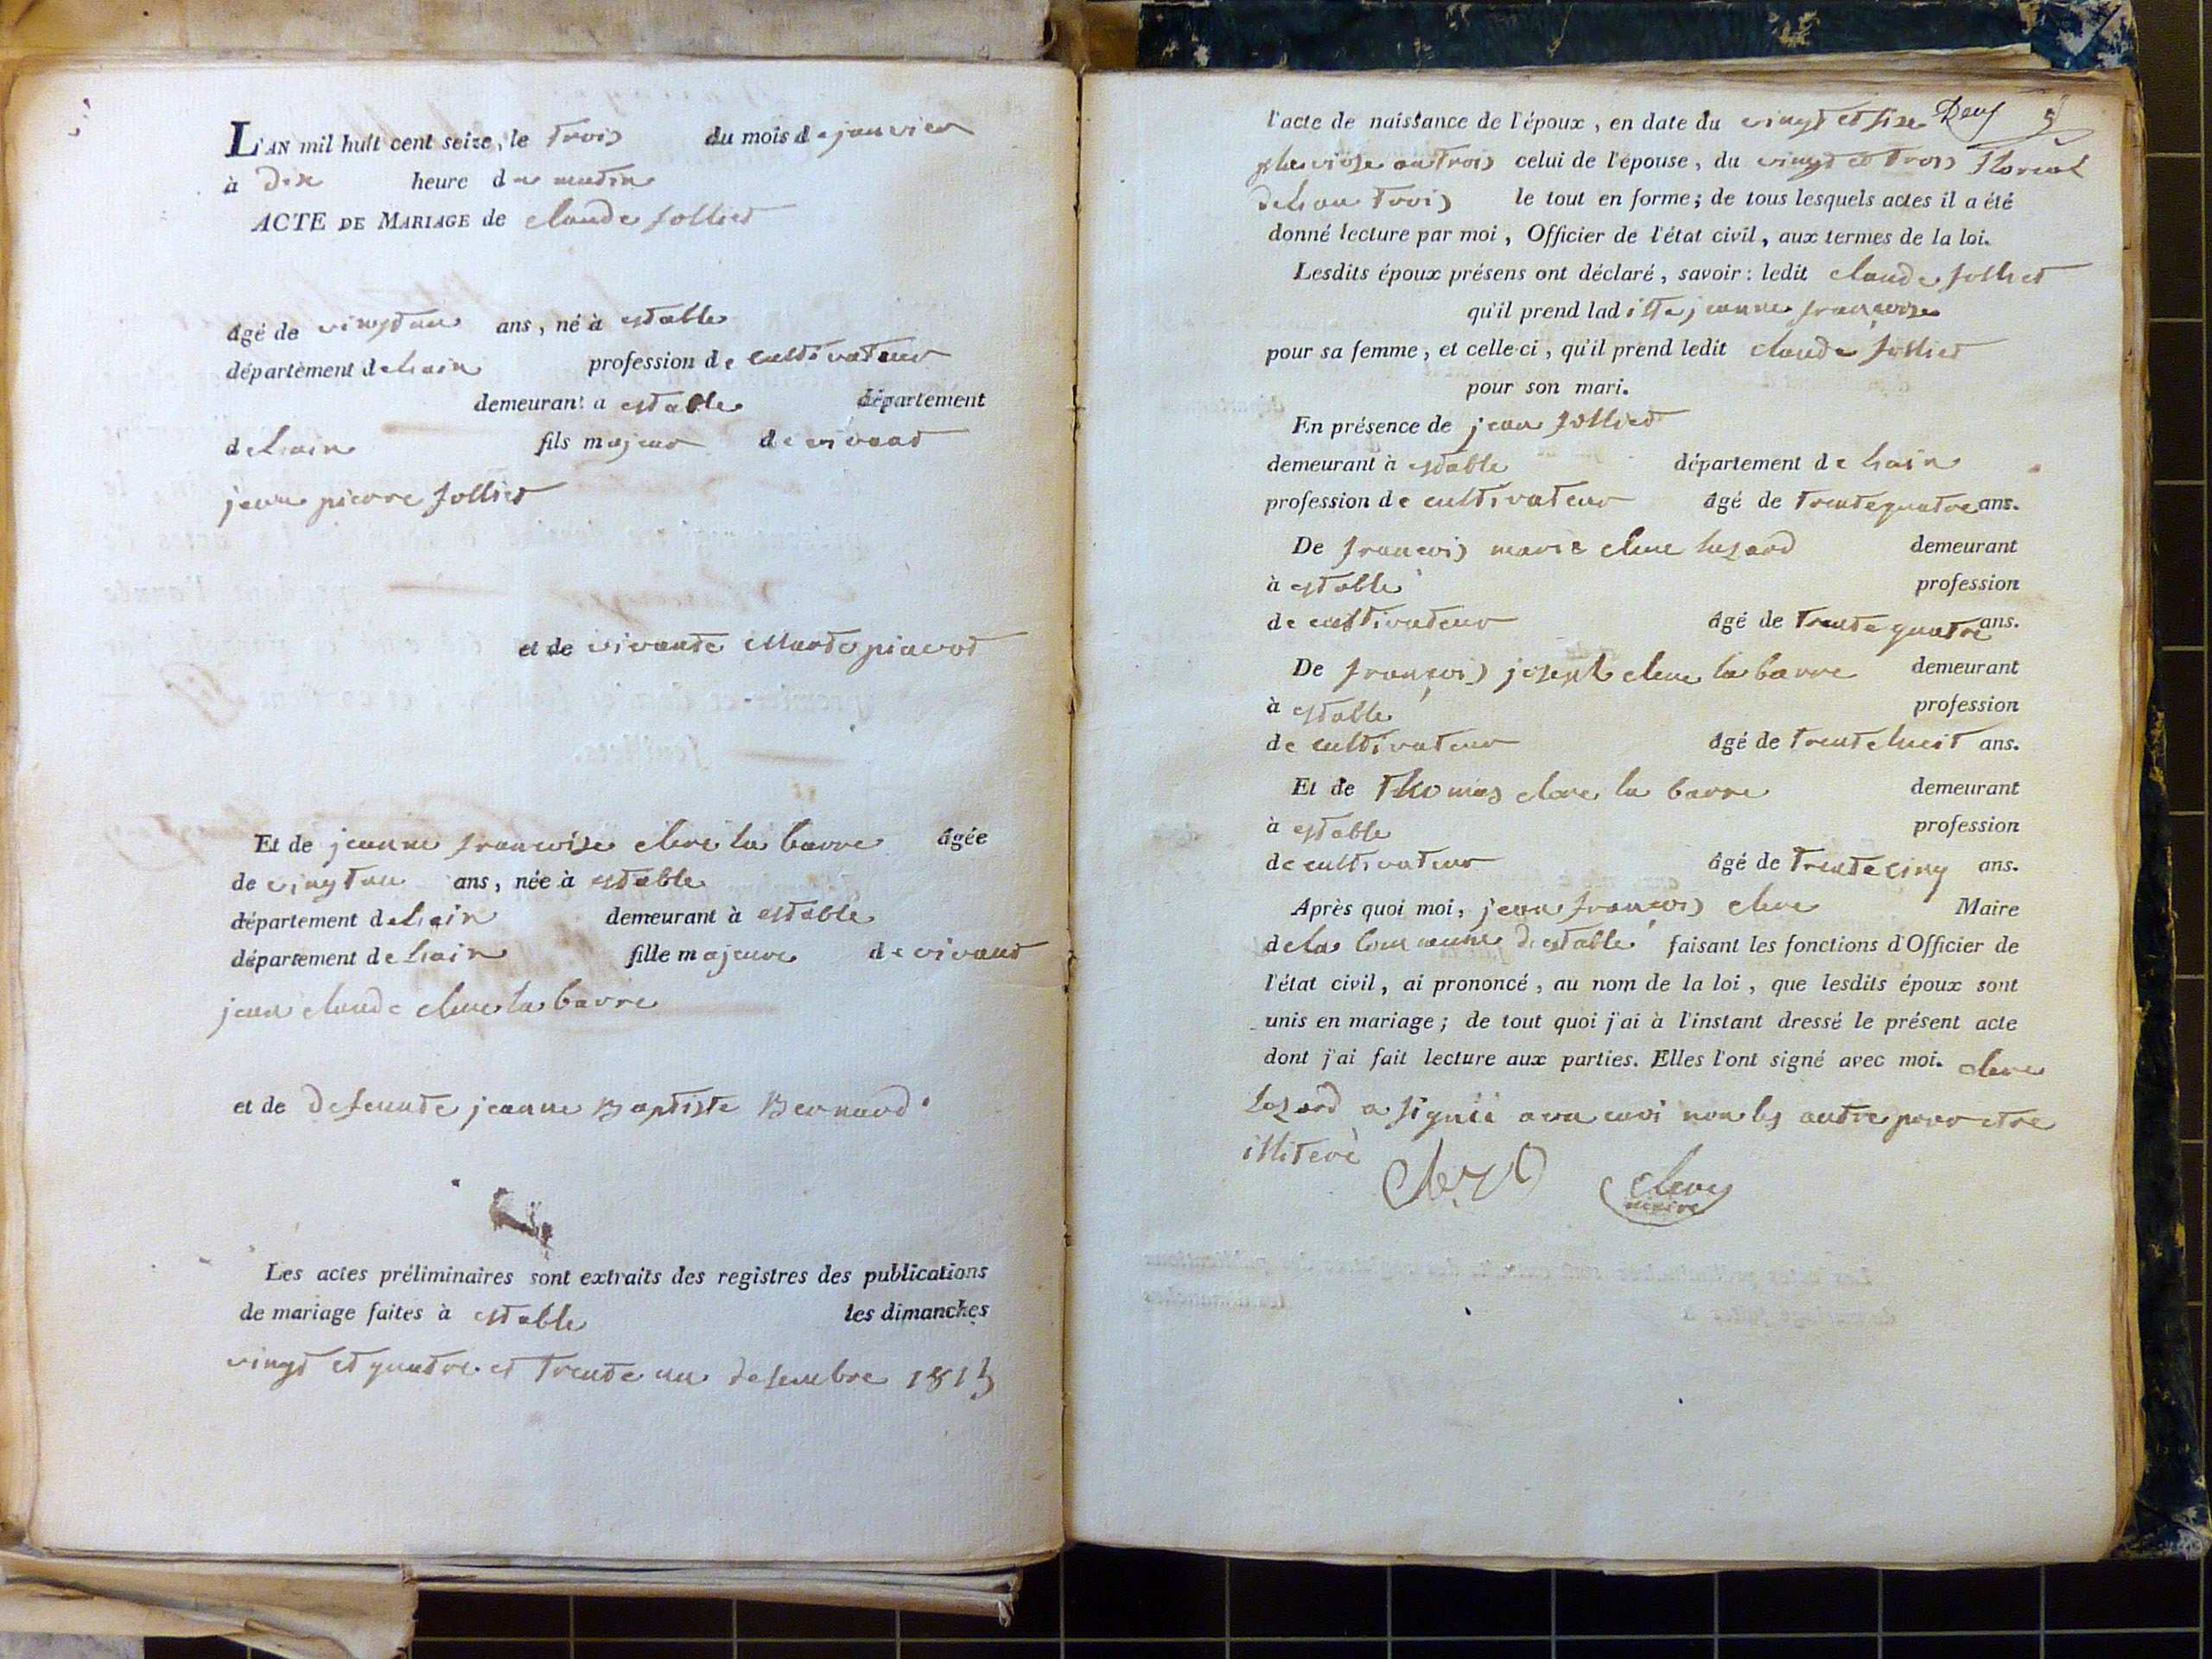 L'AN mil huit cent seize, le trois du mois de janvier
à dix heure du matin
ACTE DE MARIAGE de claude Jolliet
âgé de vingt un ans, né à estable
département de lain profession de cultivateur
demeurant a estable département
de lain fils majeur de vivant
jean pierre Jolliet
et de vivante Marte
Et de jeanne francoise clerc la barre âgée
de vingt un ans, née à estable
département de lain demeurant à estable
département de lain fille majeure de vivant
jean claude clerc la barre
et de defeunte jeanne Baptiste Bernard
Les actes préliminaires sont extraits des registres des publications
de mariage faites à estable les dimanches
vingt et quatre et trente un desembre 1815
Deux
l'acte de naissance de l'époux, en date du vingt et sixe
pluviose an trois celui de l'épouse, du vingt et trois floreal
de lan trois le tout en forme; de tous lesquels actes il a été
donné lecture par moi, Officier de l'état civil, aux termes de la loi.
Lesdits époux présens ont déclaré, savoir: ledit claude Jolliet
qu'il prend laditte jeanne francoise
pour sa femme, et celle-ci, qu'il prend ledit claude Jolliet
pour son mari.
En présence de jean Jolliet
demeurant à estable département de lain
profession de cultivateur âgé de trente quatre ans.
De francois marie clerc lazard demeurant
à estable profession
de cultivateur âgé de trente quatre ans.
De françois joseph clerc la barre demeurant
à estable profession
de cultivateur âgé de trente huit ans.
Et de Thomas clerc la barre demeurant
à estable profession
de cultivateur âgé de trente cinq ans.
Après quoi moi, jean françois clerc Maire
de la commune destable faisant les fonctions d'Officier de
l'état civil, ai prononcé, au nom de la loi, que lesdits époux sont
unis en mariage; de tout quoi j'ai à l'instant dressé le présent acte
dont j'ai fait lecture aux parties. Elles l'ont signé avec moi. clerc
lazard a signéé non les autre pour etre
illiteré
clerc
maire